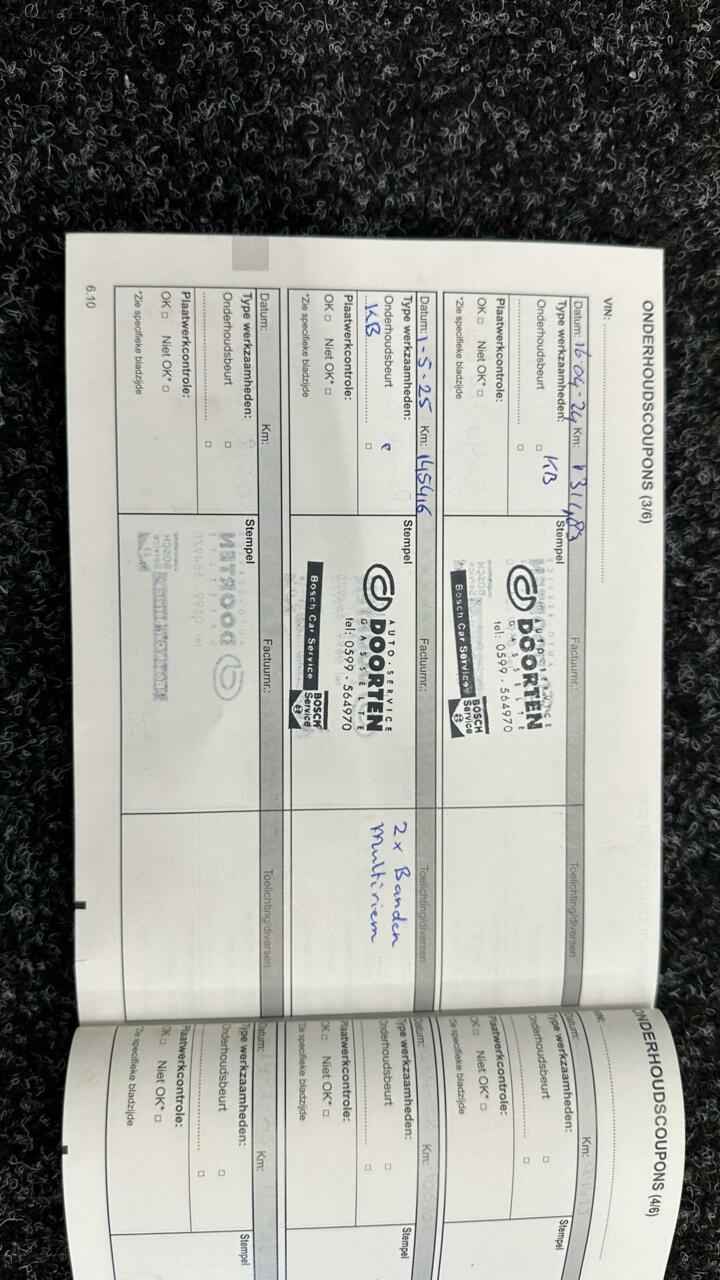 ONDERHOUDSCOUPONS (3/6)
VIN:
Datum: 16-04-24 Km: 131483 Factuurnr.: Toelichting/diversen
Type werkzaamheden: Stempel
Onderhoudsbeurt KB
Plaatwerkcontrole:
OK Niet OK*
*Zie specifieke bladzijde
AUTO-SERVICE
DOORTEN
GASSELTE
tel: 0599 - 564970
Bosch Car Service
BOSCH
Service
Datum: 1-5-25 Km: 145416 Factuurnr.: Toelichting/diversen
Type werkzaamheden: Stempel
Onderhoudsbeurt
KB
Plaatwerkcontrole:
OK Niet OK*
*Zie specifieke bladzijde
AUTO-SERVICE
DOORTEN
GASSELTE
tel: 0599 - 564970
Bosch Car Service
BOSCH
Service
2x Banden
Multiriem
Datum: Km: Factuurnr.: Toelichting/diversen
Type werkzaamheden: Stempel
Onderhoudsbeurt
Plaatwerkcontrole:
OK Niet OK*
*Zie specifieke bladzijde
6.10
ONDERHOUDSCOUPONS (4/6)
Datum: Km:
Type werkzaamheden: Stempel
Onderhoudsbeurt
Plaatwerkcontrole:
OK Niet OK*
*Zie specifieke bladzijde
Datum: Km:
Type werkzaamheden: Stempel
Onderhoudsbeurt
Plaatwerkcontrole:
OK Niet OK*
*Zie specifieke bladzijde
Datum: Km:
Type werkzaamheden: Stempel
Onderhoudsbeurt
Plaatwerkcontrole:
OK Niet OK*
*Zie specifieke bladzijde